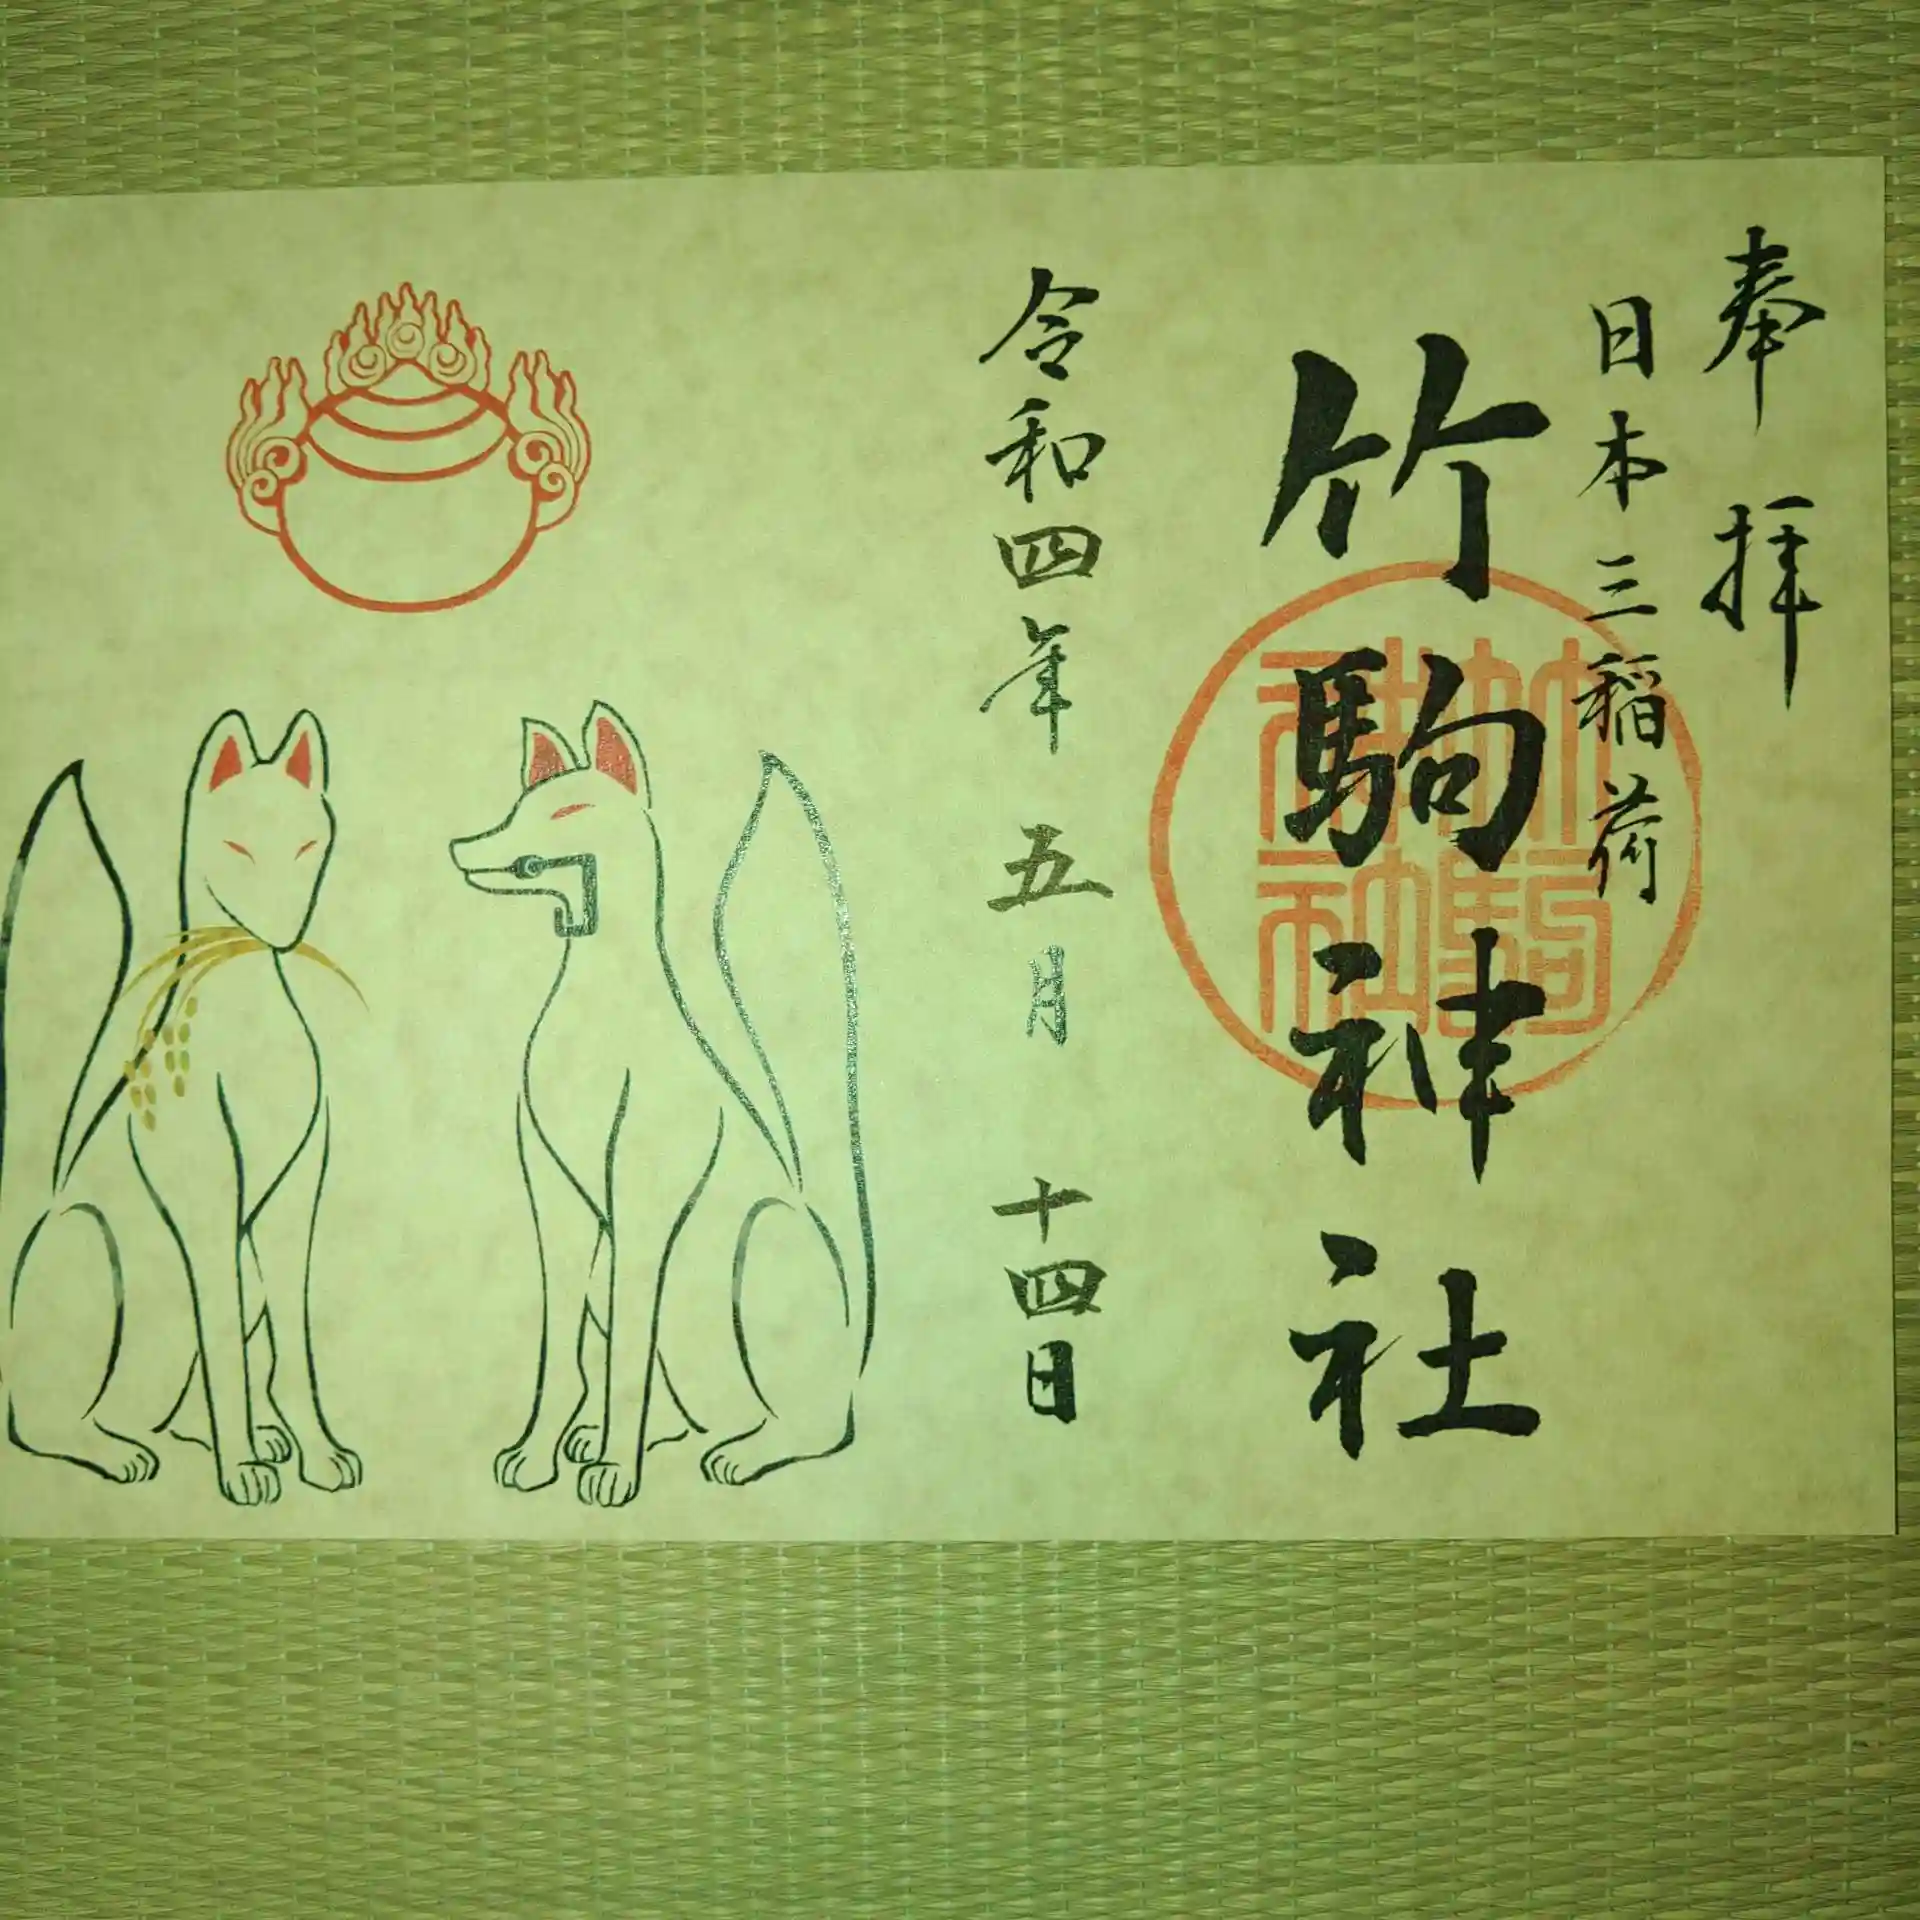 奉拝
日本三稲荷
竹駒神社
竹駒神社
令和四年五月十四日